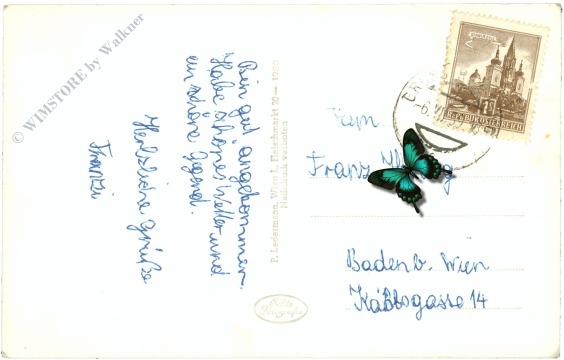 © WIMSTORE by Walkner
Bin gut angekommen.
Habe schönes Wetter und
ein schöne Gegend.
Herzliche Grüße
Franzi
P. Ledermann, Wien I., Fleischmarkt 20 — 1960
Nachdruck verboten
Echte
Fotografie
MARIAZELL
1S
REPUBLIK ÖSTERREICH
Fam.
Franz
Baden b. Wien
14